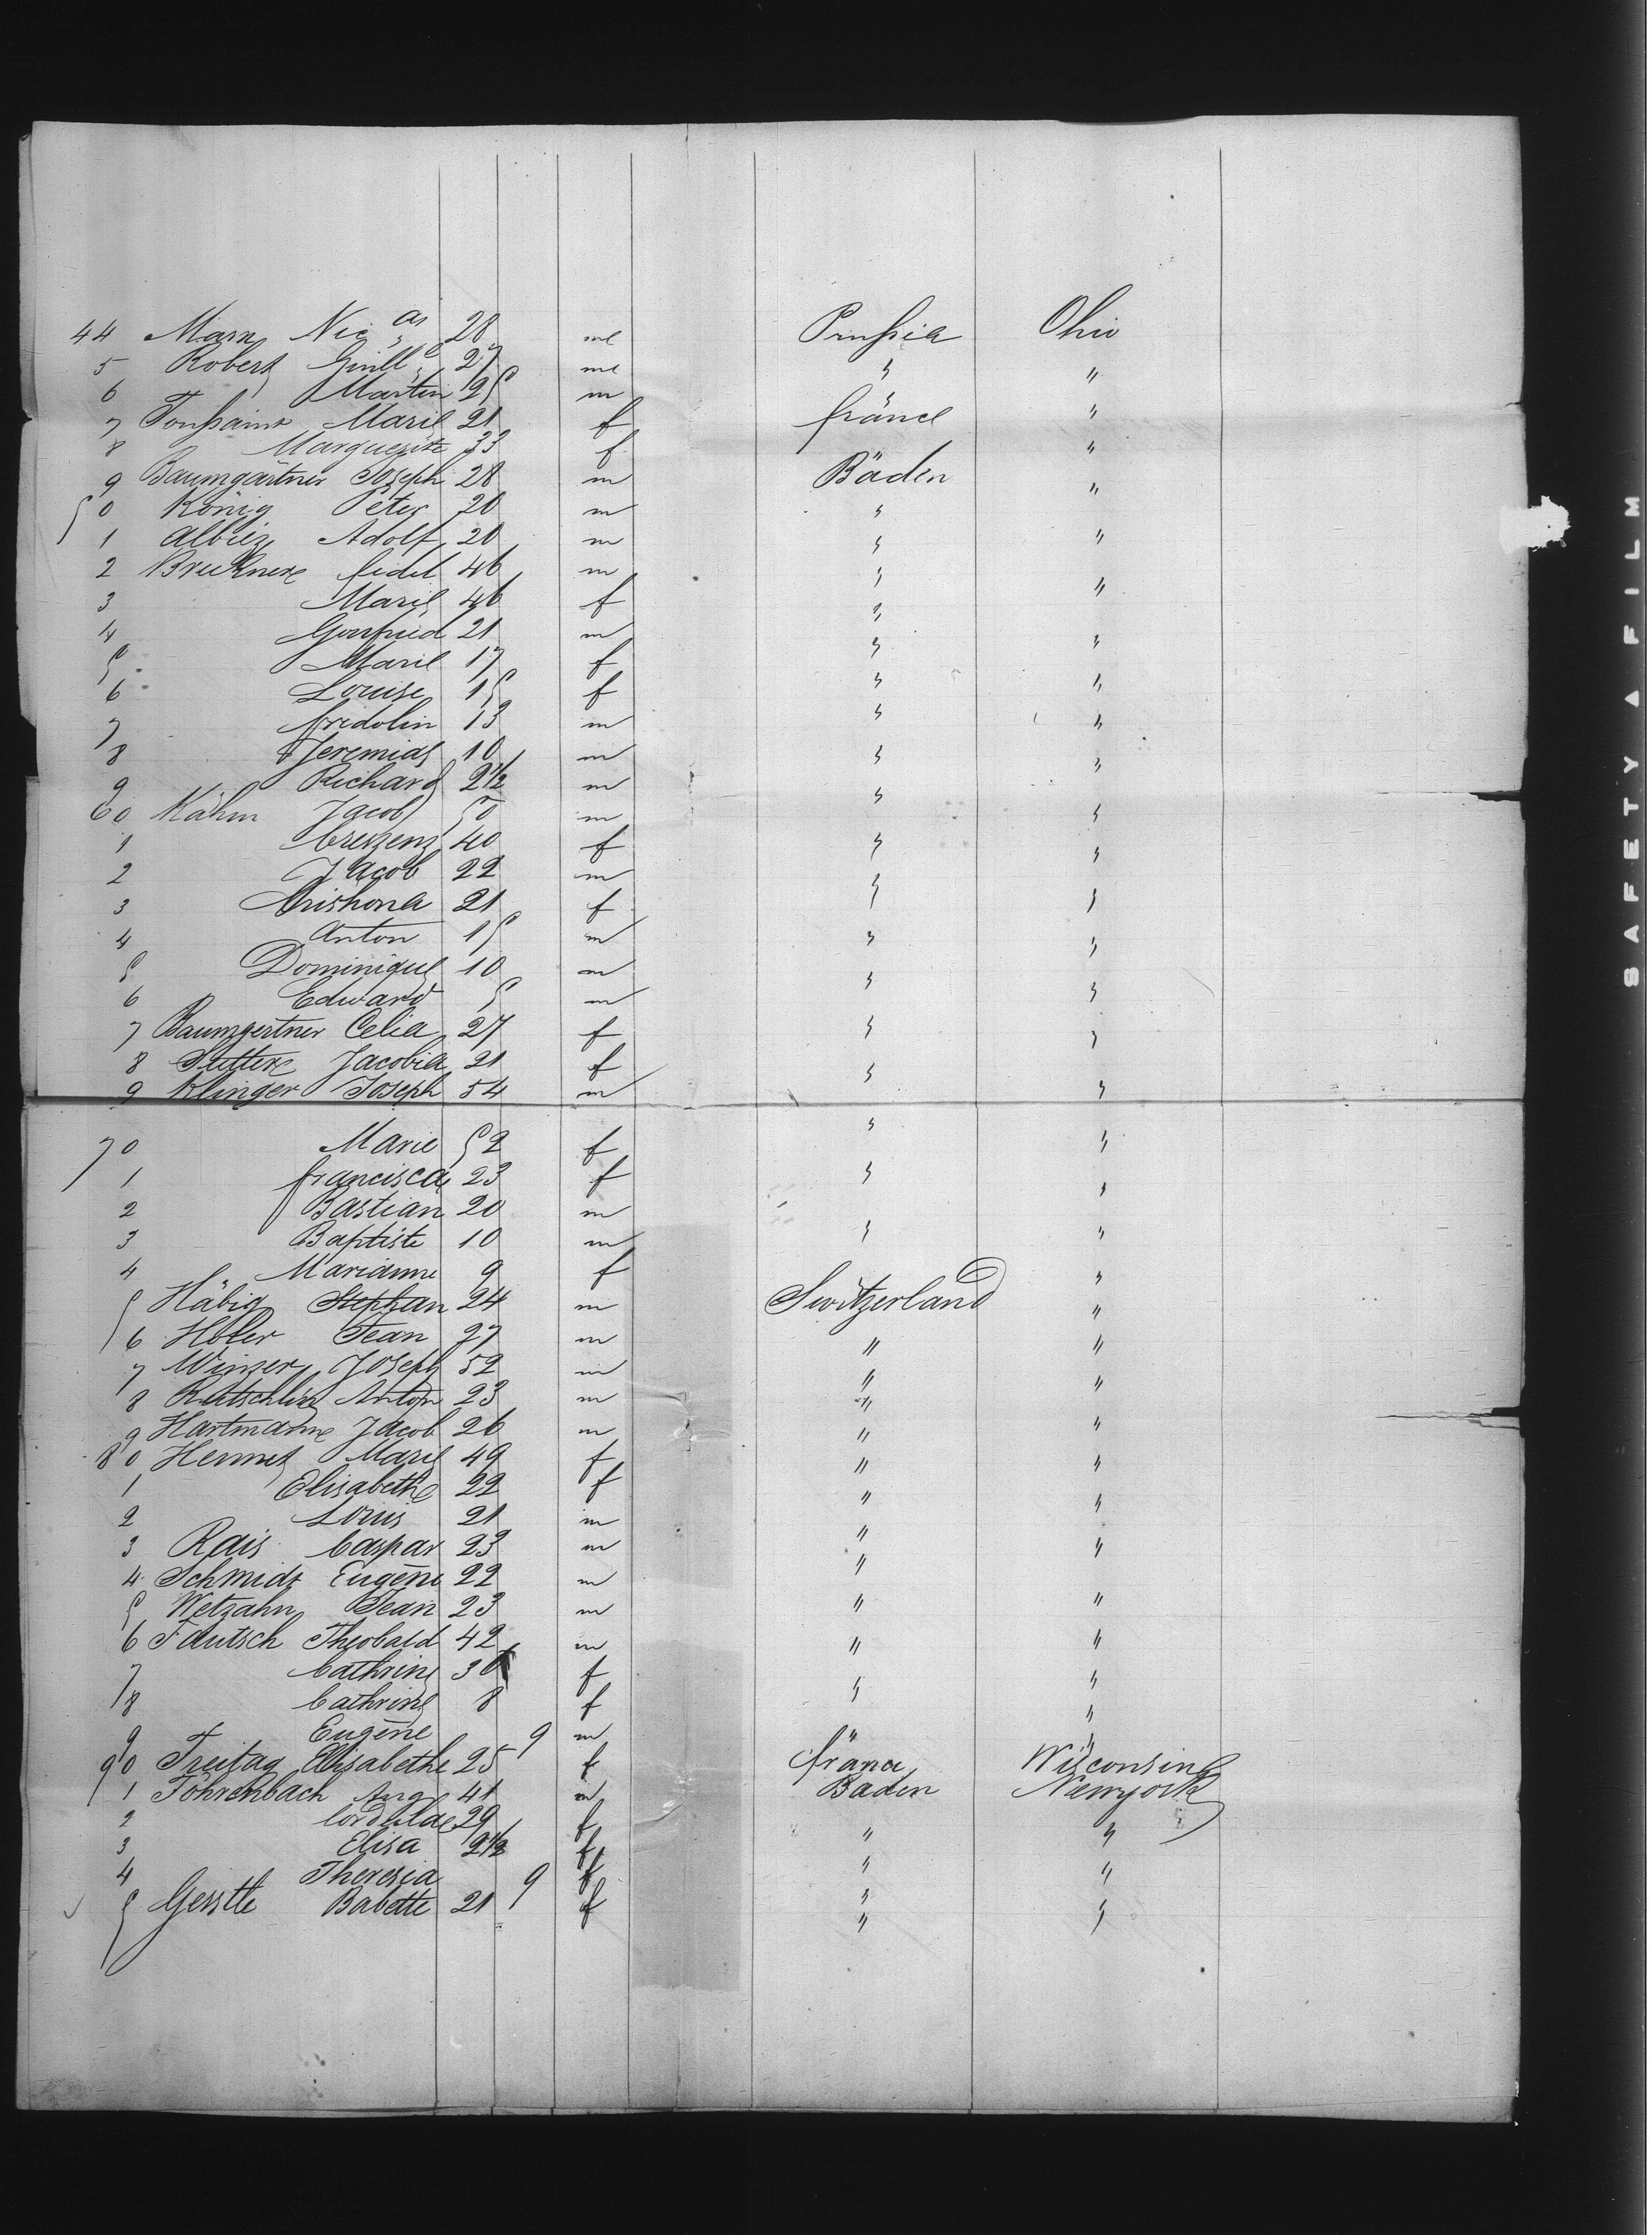 44 Marn Nic as 28 m Prussia Ohio
5 Robert Guill e 27 m " "
6 Martin 25 m " "
7 Toussaint Marie 21 f france "
8 Marguerite 33 f "
9 Baumgärtner Joseph 28 m Baden "
50 König Peter 20 m "
1 Albiez Adolf 20 m " "
2 Bruckner fidel 46 m " "
3 Marie 46 f "
4 Gottfried 21 m " "
5 Marie 17 f " "
6 Louise 15 f " "
7 fridolin 13 m "
8 Jeremias 10 m " "
9 Richard 2½ m "
60 Kähm Jacob 50 m "
1 Creszenz 40 f " "
2 Jacob 22 m "
3 Crishona 21 f "
4 Anton 15 m " "
5 Dominique 10 m "
6 Edward 5 m "
7 Baumgertner Celia 27 f " "
8 Sutter Jacobia 21 f "
9 Klinger Joseph 54 m "
70 Marie 52 f " "
1 francisca 23 f " "
2 Bastian 20 m
3 Baptiste 10 m " "
4 Marianne 9 f "
5 Häbig Stephan 24 m Switzerland "
6 Hofer Jean 27 m " "
7 Winzer Joseph 52 m " "
8 Rätschlin Anton 23 m "
9 Hartmann Jacob 26 m " "
80 Hennet Marie 49 f " "
1 Elisabeth 22 f " "
2 Louis 21 m "
3 Rais Caspar 23 m " "
4 Schmidt Eugène 22 m
5 Wetzahn Jean 23 m " "
6 Fautsch Theobald 42 m " "
7 Cathrine 30 f "
8 Cathrine 8 f " "
9 Eugène 9 m
90 Freitag Elisabethe 25 f france Wisconsin
1 Föhrenbach Aug 41 m Baden Newyork
2 Cordula 29 f " "
3 Elisa 2½ f " "
4 Theresia 9 f "
5 Gerstle Babette 21 f " "
SAFETY A FILM